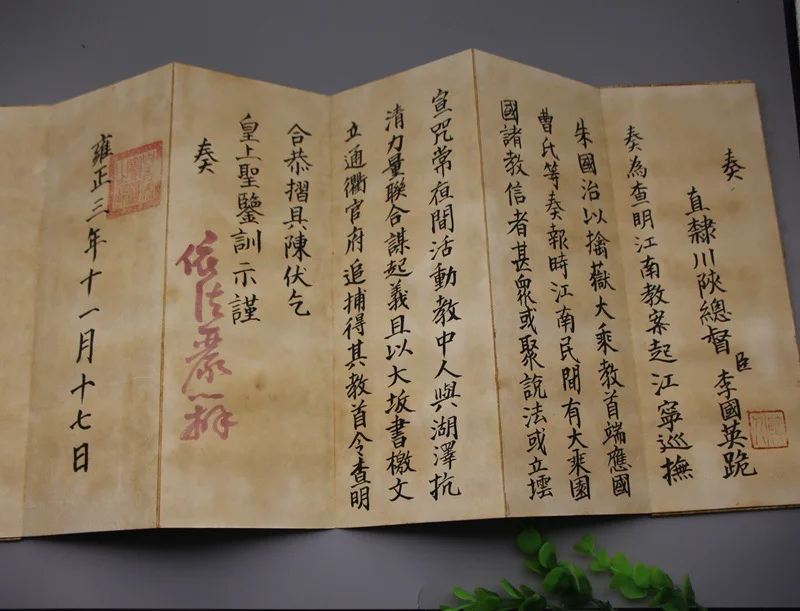 奏
直隸川陝總督臣李國英跪
奏為查明江南教案起江寧巡撫
朱國治以擒嶽大乘教首端應國
曹氏等奏報時江南民間有大乘園
國諸教信者甚眾或聚說法或立壇
宣咒常夜間活動教中人與湖澤抗
清力量聯合謀起義且以大坂書檄文
立通衢官府追捕得其教首令查明
合恭摺具陳伏乞
皇上聖鑒訓示謹
奏
依法嚴辦
雍正三年十一月十七日